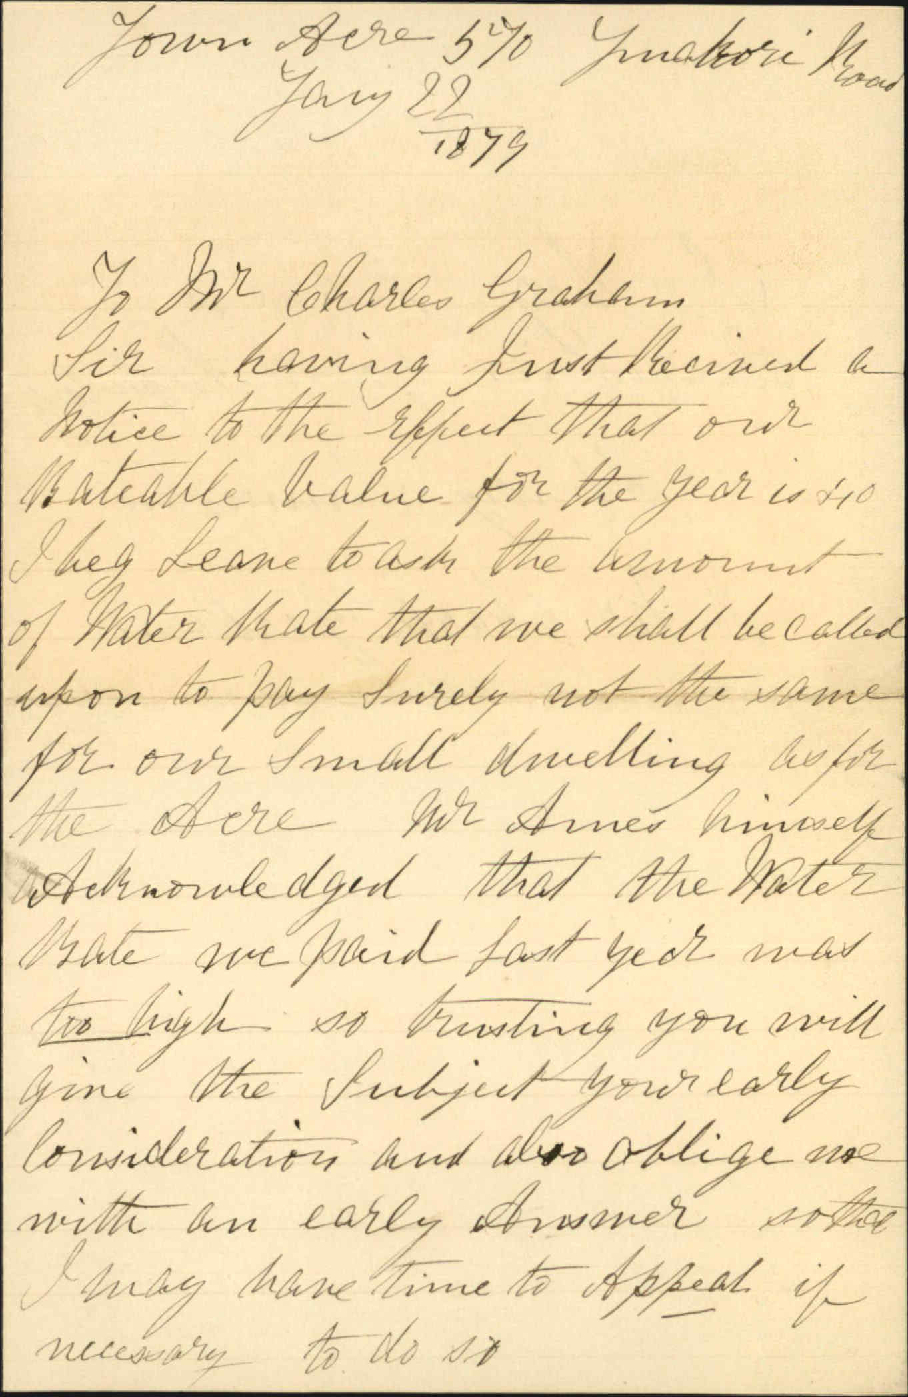 Town Acre 570 Tinakori Road
Jany 22
1879
To Mr Charles Graham
Sir having Just Received a
Notice to the Effect that our
Rateable Value for the year is £10
I beg Leave to ask the amount
of Water Rate that we shall be called
upon to pay Surely not the same
for our Small dwelling as for
the Acre Mr Ames himself
Acknowledged that the Water
Rate we paid Last year was
too high so trusting you will
give the Subject your early
Consideration and also oblige me
with an early Answer so that
I may have time to Appeal if
necessary to do so